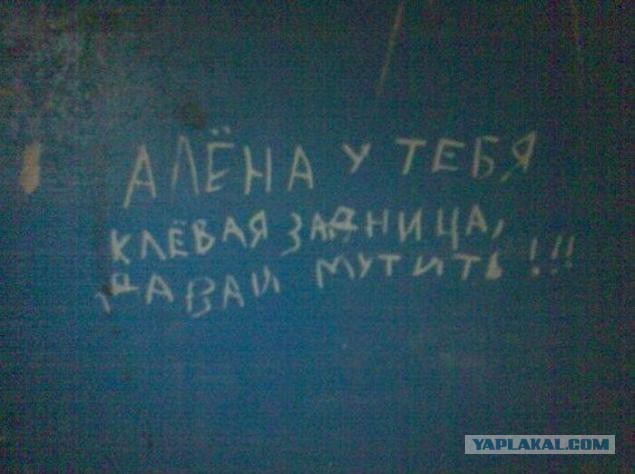 АЛЁНА У ТЕБЯ
КЛЁВАЯ ЗАДНИЦА,
ДАВАЙ МУТИТЬ!!!
YAPLAKAL.COM